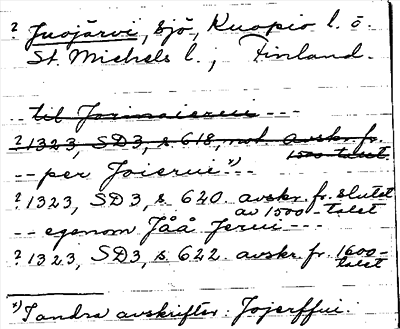 ? Juojärvi, sjö, Kuopio l. o.
St. Michels l., Finland.
-- til Jorinaierui ---
? 1323, SD3, s. 618, not. avskr. fr.
1500-talet
-- per Joierui x) --
? 1323, SD3, s. 620. avskr. fr. slutet
av 1500-talet
-- egenom Jåå Jerui ---
? 1323, SD3, s. 622. avskr. fr. 1600-
talet
x) I andra avskrifter: Jojerffui.